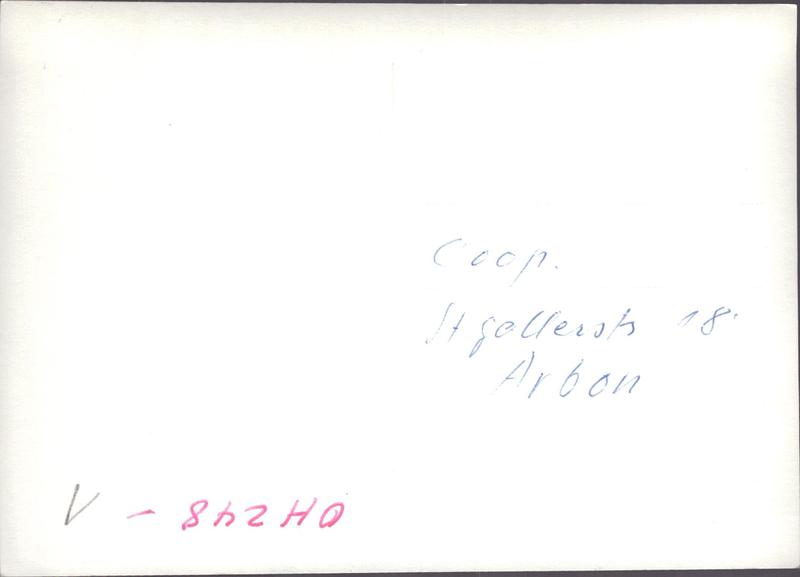 Coop.
St gallerstr 18.
Arbon